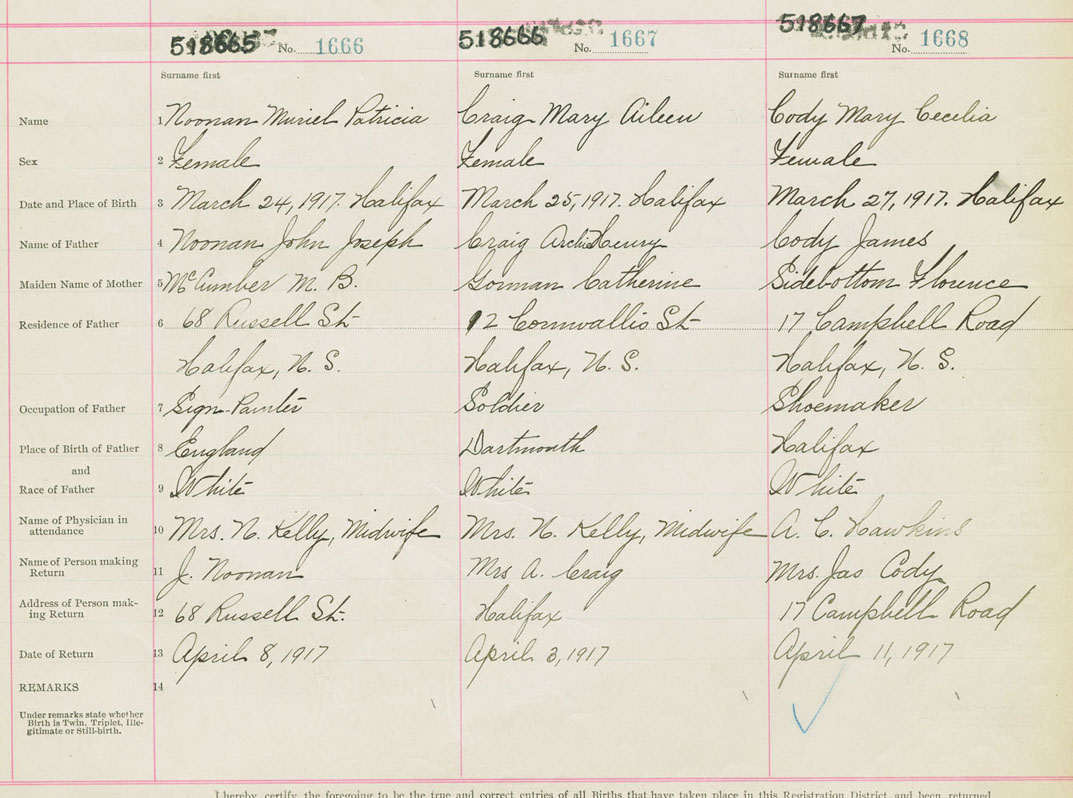 518665 No. 1666 518666 No. 1667 518667 No. 1668
Surname first Surname first Surname first
Name 1 Noonan Muriel Patricia Craig Mary Aileen Cody Mary Cecilia
Sex 2 Female Female Female
Date and Place of Birth 3 March 24, 1917. Halifax March 25, 1917. Halifax March 27, 1917. Halifax
Name of Father 4 Noonan John Joseph Craig Archi Henry Cody James
Maiden Name of Mother 5 McCumber M. B. Gorman Catherine Sidebottom Florence
Residence of Father 6 68 Russell St. 12 Cornwallis St. 17 Campbell Road
Halifax, N. S. Halifax, N. S. Halifax, N. S.
Occupation of Father 7 Sign-Painter Soldier Shoemaker
Place of Birth of Father 8 England Dartmouth Halifax
and
Race of Father 9 White White White
Name of Physician in
attendance 10 Mrs. N. Kelly, Midwife Mrs. N. Kelly, Midwife A. C. Hawkins
Name of Person making
Return 11 J. Noonan Mrs A. Craig Mrs. Jas Cody
Address of Person mak-
ing Return 12 68 Russell St. Halifax 17 Campbell Road
Date of Return 13 April 8, 1917 April 3, 1917 April 11, 1917
REMARKS 14
Under remarks state whether
Birth is Twin, Triplet, Ille-
gitimate or Still-birth.
I hereby certify the foregoing to be the true and correct entries of all Births that have taken place in this Registration District and been returned